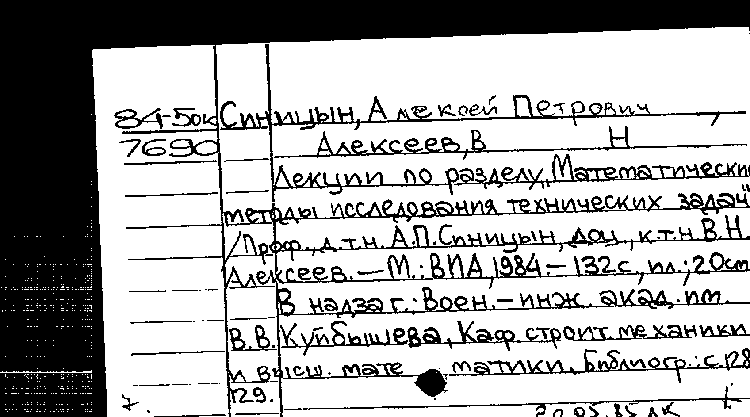 84-5ок Синицын, Алексей Петрович,
7690 Алексеев, В Н
Лекции по разделу "Математически
методы исследования технических задач"
/Проф., д.т.н. А.П. Синицын, доц., к.т.н. В.Н.
Алексеев. — М.: ВИА, 1984 — 132 с., ил.; 20 см
В надзаг.: Воен.-инж. акад. им.
В.В. Куйбышева, Каф. строит. механики
и высш. мате матики. Библиогр.: с. 128
129.
20.05.85 ЛК